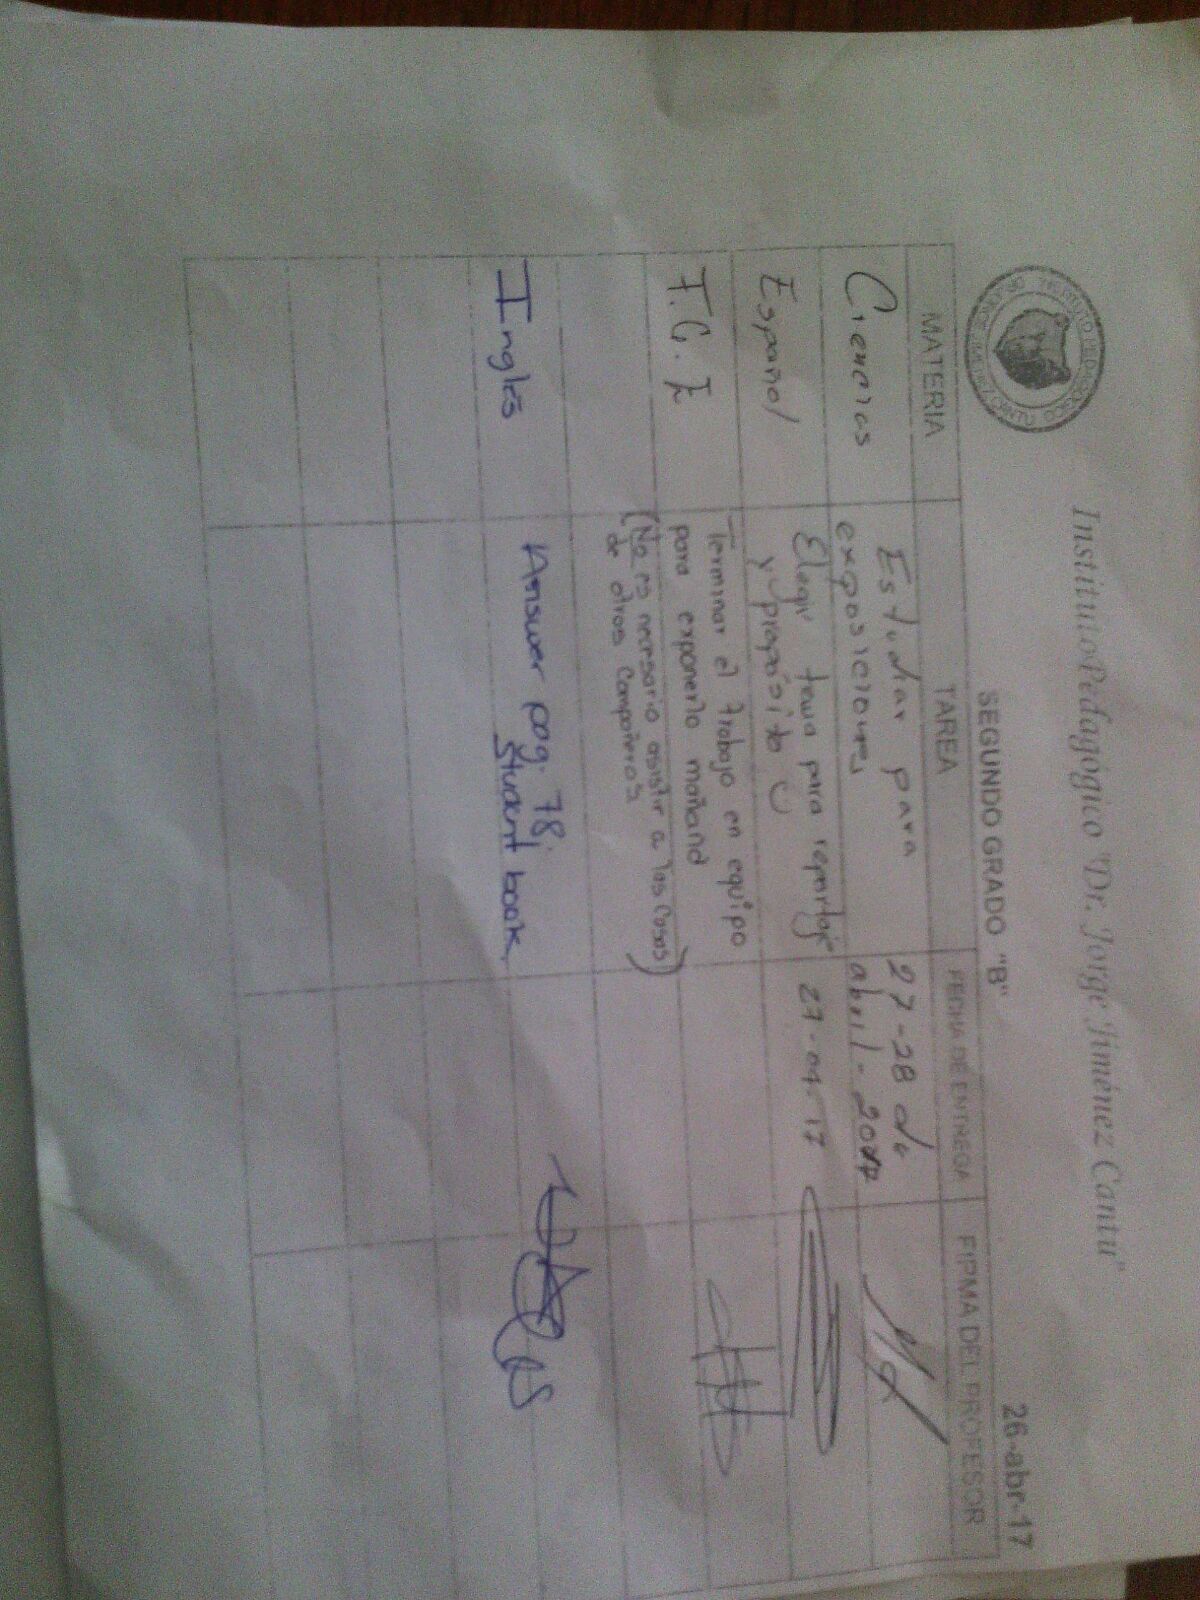 Instituto Pedagógico "Dr. Jorge Jiménez Cantú"
26-abr-17
SEGUNDO GRADO "B"
INSTITUTO PEDAGOGICO DR. JORGE JIMENEZ CANTU
MATERIA TAREA FECHA DE ENTREGA FIRMA DEL PROFESOR
Ciencias Estudiar para 27-28 de
exposiciones abril-2017
Español Elegir tema para reportaje 27-04-17
y propósito
F.C.E Terminar el trabajo en equipo
para exponerlo mañana
(No es necesario asistir a las casas
de otros compañeros)
Inglés Answer pag. 78.
Student book